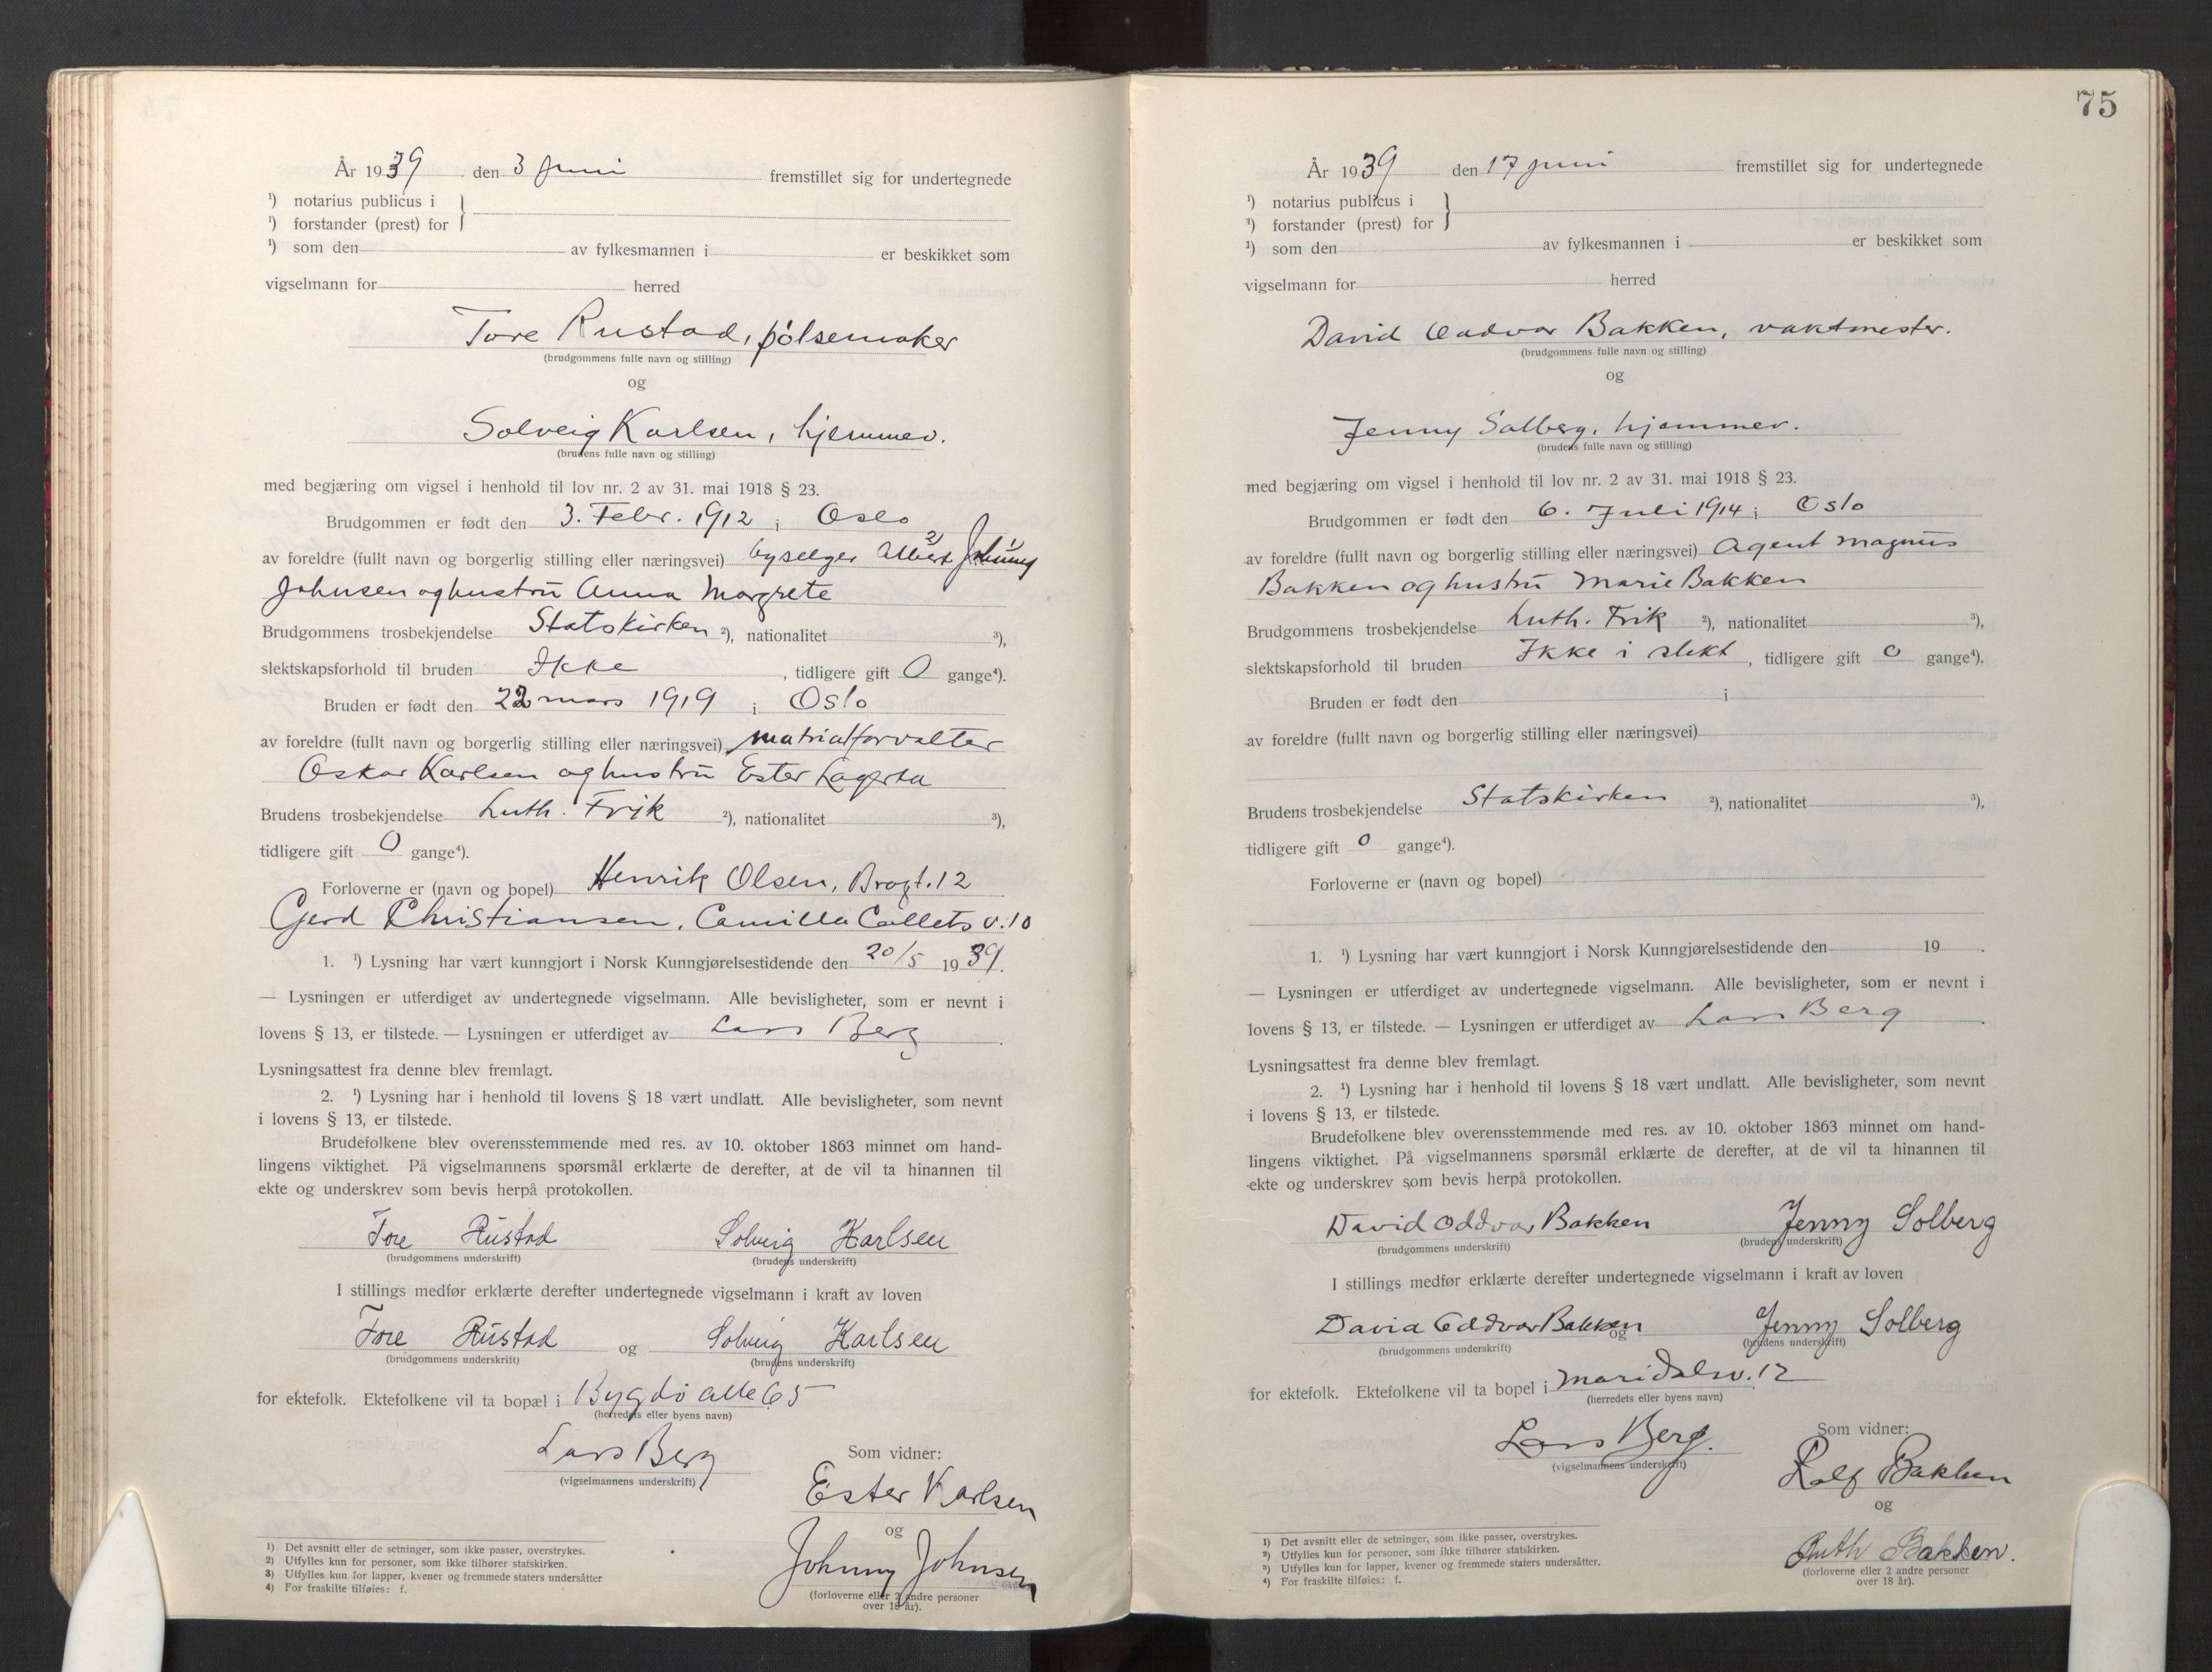 År 1939 den 3 Juni fremstillet sig for undertegnede
¹) notarius publicus i
¹) forstander (prest) for
¹) som den av fylkesmannen i er beskikket som
vigselmann for herred
Tore Rustad, pølsemaker
(brudgommens fulle navn og stilling)
og
Solveig Karlsen, hjemmev.
(brudens fulle navn og stilling)
med begjæring om vigsel i henhold til lov nr. 2 av 31. mai 1918 § 23.
Brudgommen er født den 3. Febr. 1912 i Oslo
av foreldre (fullt navn og borgerlig stilling eller næringsvei) Albert Johnny
Johnsen og hustru Anna Margrete
Brudgommens trosbekjendelse Statskirken ²), nationalitet ³),
slektskapsforhold til bruden Ikke, tidligere gift 0 gange⁴).
Bruden er født den 22 mars 1919 i Oslo
av foreldre (fullt navn og borgerlig stilling eller næringsvei) matrialforvalter
Oskar Karlsen og hustru Ester Lagerta
Brudens trosbekjendelse Luth. Frik ²), nationalitet ³),
tidligere gift 0 gange⁴).
Forloverne er (navn og bopel) Henrik Olsen, Bragt. 12
Gerd Christiansen, Camilla Collets v. 10
1. ¹) Lysning har vært kunngjort i Norsk Kunngjørelsestidende den 20/5 1939.
— Lysningen er utferdiget av undertegnede vigselmann. Alle bevisligheter, som er nevnt i
lovens § 13, er tilstede. — Lysningen er utferdiget av Lars Berg.
Lysningsattest fra denne blev fremlagt.
2. ¹) Lysning har i henhold til lovens § 18 vært undlatt. Alle bevisligheter, som nevnt
i lovens § 13, er tilstede.
Brudefolkene blev overensstemmende med res. av 10. oktober 1863 minnet om hand-
lingens viktighet. På vigselmannens spørsmål erklærte de derefter, at de vil ta hinannen til
ekte og underskrev som bevis herpå protokollen.
Tore Rustad Solveig Karlsen
(brudgommens underskrift) (brudens underskrift)
I stillings medfør erklærte derefter undertegnede vigselmann i kraft av loven
Tore Rustad og Solveig Karlsen
(brudgommens underskrift) (brudens underskrift)
for ektefolk. Ektefolkene vil ta bopæl i Bygdø alle 65
(herredets eller byens navn)
Lars Berg
(vigselmannens underskrift)
Som vidner:
Ester Karlsen
og
Johnny Johnsen
(forloverne eller 2 andre personer
over 18 år).
1) Det avsnitt eller de setninger, som ikke passer, overstrykes.
2) Utfylles kun for personer, som ikke tilhører statskirken.
3) Utfylles kun for lapper, kvener og fremmede staters undersåtter
4) For fraskilte tilføies: f.
75
År 1939 den 17 juni fremstillet sig for undertegnede
¹) notarius publicus i
¹) forstander (prest) for
¹) som den av fylkesmannen i er beskikket som
vigselmann for herred
David Oddvar Bakken, vaktmester.
(brudgommens fulle navn og stilling)
og
Jenny Solberg, hjemmev.
(brudens fulle navn og stilling)
med begjæring om vigsel i henhold til lov nr. 2 av 31. mai 1918 § 23.
Brudgommen er født den 6. Juli 1914 i Oslo
av foreldre (fullt navn og borgerlig stilling eller næringsvei) Agent Magnus
Bakken og hustru Marie Bakken
Brudgommens trosbekjendelse Luth. Frik ²), nationalitet ³),
slektskapsforhold til bruden Ikke i slekt, tidligere gift 0 gange⁴).
Bruden er født den i
av foreldre (fullt navn og borgerlig stilling eller næringsvei)
Brudens trosbekjendelse Statskirken ²), nationalitet ³),
tidligere gift 0 gange⁴).
Forloverne er (navn og bopel)
1. ¹) Lysning har vært kunngjort i Norsk Kunngjørelsestidende den 19 .
— Lysningen er utferdiget av undertegnede vigselmann. Alle bevisligheter, som er nevnt i
lovens § 13, er tilstede. — Lysningen er utferdiget av Lars Berg.
Lysningsattest fra denne blev fremlagt.
2. ¹) Lysning har i henhold til lovens § 18 vært undlatt. Alle bevisligheter, som nevnt
i lovens § 13, er tilstede.
Brudefolkene blev overensstemmende med res. av 10. oktober 1863 minnet om hand-
lingens viktighet. På vigselmannens spørsmål erklærte de derefter, at de vil ta hinannen til
ekte og underskrev som bevis herpå protokollen.
David Oddvar Bakken Jenny Solberg
(brudgommens underskrift) (brudens underskrift)
I stillings medfør erklærte derefter undertegnede vigselmann i kraft av loven
David Oddvar Bakken og Jenny Solberg
(brudgommens underskrift) (brudens underskrift)
for ektefolk. Ektefolkene vil ta bopel i Maridalsv. 12
(herredets eller byens navn)
Lars Berg.
(vigselmannens underskrift)
Som vidner:
Rolf Bakken
og
Ruth Bakken.
(forloverne eller 2 andre personer
over 18 år).
¹) Det avsnitt eller de setninger, som ikke passer, overstrykes.
²) Utfylles kun for personer, som ikke tilhører statskirken.
³) Utfylles kun for lapper, kvener og fremmede staters undersåtter.
⁴) For fraskilte tilføies: f.